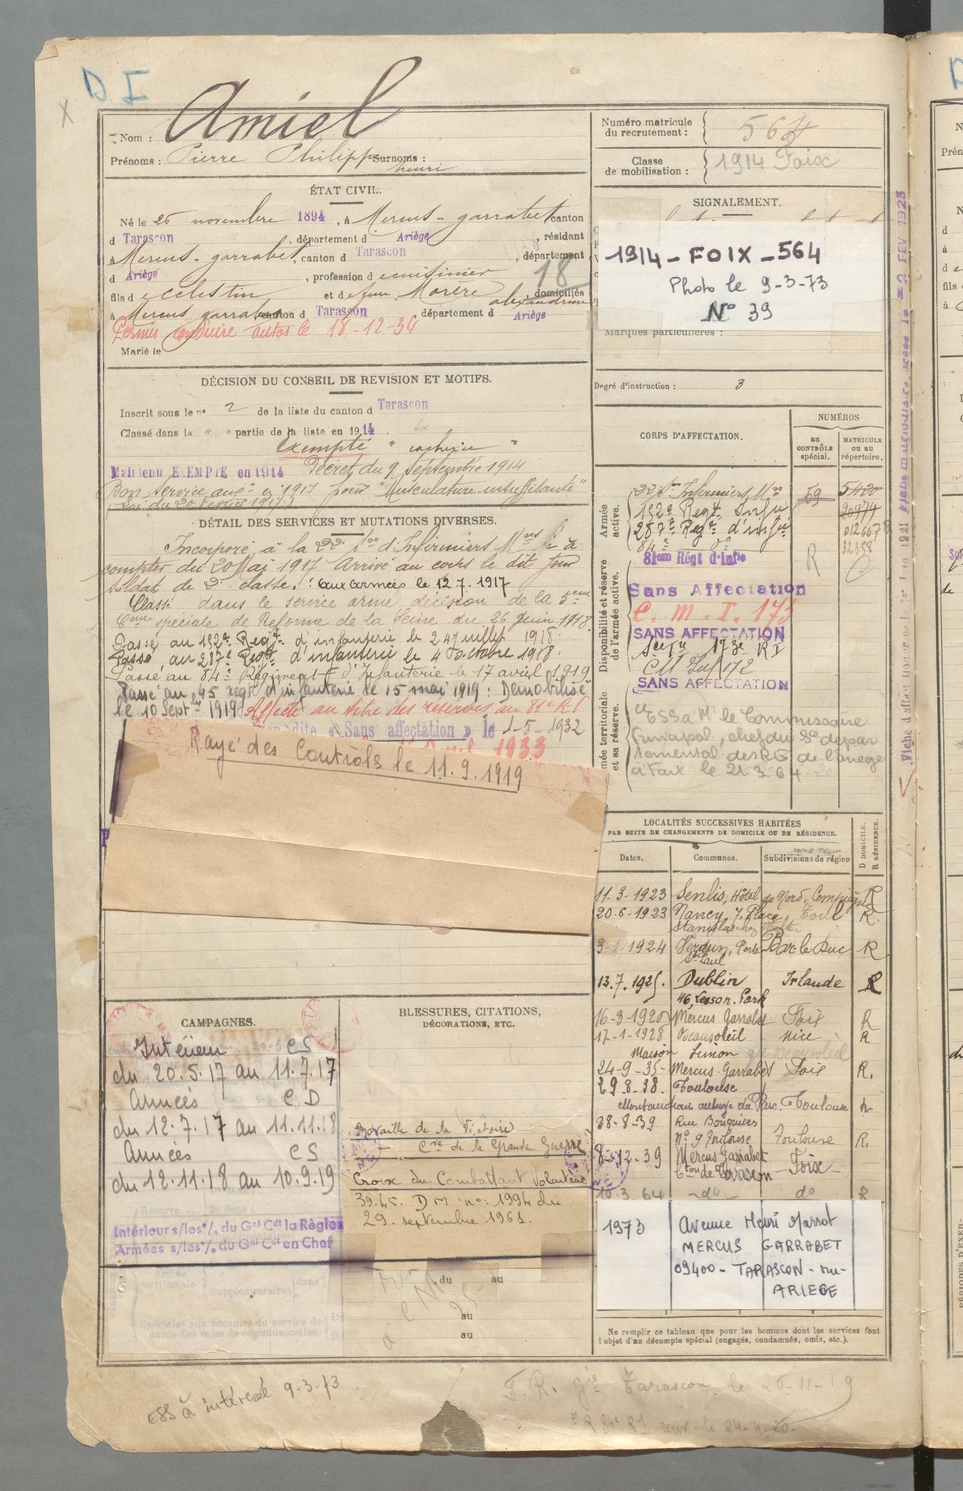 D I
X
Nom : Amiel
Prénoms : Pierre Philippe Surnoms :
henri
Numéro matricule
du recrutement : 564
Classe
de mobilisation : 1914 Foix
ÉTAT CIVIL.
Né le 25 novembre 1894, à Mercus-garrabet canton
d Tarascon, département d Ariège, résidant
à Mercus-garrabet, canton d Tarascon, département
d Ariège, profession d e cuisinier
18
fils d e Celestin et de feu Mortre alexandrine, domiciliés
à Mercus garrabet canton d Tarascon département d Ariège
Permis conduire autos le 18-12-34
Marié le
SIGNALEMENT.
1914-FOIX-564
Photo le 9-3-73
N° 39
Marques particulières :
Degré d'instruction : 3
DÉCISION DU CONSEIL DE REVISION ET MOTIFS.
Inscrit sous le n° 2 de la liste du canton d Tarascon
Classé dans la " " partie de la liste en 1914
Exempté
Maintenu EXEMPTE en 1914 Décret du 9 Septembre 1914
Bon service aux. en 1917 pour "Musculature insuffisante"
Loi du 20 février 1917
DÉTAIL DES SERVICES ET MUTATIONS DIVERSES.
Incorporé à la 22e Son d'Infirmiers Mres à
compter du 20 Mai 1917 Arrivé au corps le dit jour
soldat de 2e classe. aux armées le 12.7.1917
Classé dans le service armé décision de la 5eme
Come spéciale de Réforme de la Seine du 26 juin 1918
Passé au 152e Regt d'infanterie le 24 juillet 1918.
Passé au 287e Regt d'infanterie le 4 octobre 1918.
Passé au 84e Régiment d'Infanterie le 17 avril 1919
Passé au 45 regt d'infanterie le 15 mai 1919 : Démobilisé
le 10 Septre 1919 Affecté au titre des réserves au 81e R.I
dite « Sans affectation » le 1-5-1932
1933
Rayé des Contrôls le 11.9.1919
CORPS D'AFFECTATION.
NUMÉROS
AU
CONTRÔLE
spécial.
MATRICULE
OU AU
répertoire.
Armée
active.
22e Son Infirmiers Mres 59 5420
152e Regt Infie 20474
287e Regt d'infie
84e do 32358
81eme Régt d'Infie
R
Disponibilité et réserve
de l'armée active.
Sans Affectation
C. M. I. 173
SANS AFFECTATION
173e RI
CM Inf 172
SANS AFFECTATION
Armée territoriale
et sa réserve.
ESS à Mr le Commissaire
principal, chef du Sce dépar
temental des RG de l'Ariège
à Foix le 21.3.64
LOCALITÉS SUCCESSIVES HABITÉES
PAR SUITE DE CHANGEMENTS DE DOMICILE OU DE RÉSIDENCE.
Dates. Communes. Subdivisions de région
D. DOMICILE.
R. RÉSIDENCE.
11-3-1923 Senlis, Hôtel du Nord, Compiègne R
20-6-1923 Nancy, 7, Place Toul R
Stanislas
1924 Verdun, Porte Bar le Duc R
St Paul
13.7.1925. Dublin Irlande R
46, Leeson Park
16-9-1926 Mercus Garrabet Foix R
17-1-1928 Beausoleil Nice R
Maison Simon
24-9-35- Mercus-Garrabet Foix R.
29-8-38- Toulouse
Montaudran auberge du Parc. Toulouse
28-8-39 Rue Bouquières
n° 9 Toulouse Toulouse R.
8-12-39 Mercus Garrabet
Cton de Tarascon Foix
10-3 64 -do- do R
1973 Avenue Henri Marrot
MERCUS GARRABET
09400- TARASCON-sur-
ARIEGE
Ne remplir ce tableau que pour les hommes dont les services font
l'objet d'un décompte spécial (engagés, condamnés, omis, etc.).
CAMPAGNES.
Intérieur CS
du 20.5.17 au 11.7.17
Armées CD
du 12.7.17 au 11.11.18
Armées CS
du 12.11.18 au 10.9.19
Intérieur s/les °/. du Gal Cdt la Région
Armées s/les °/. du Gal Cdt en Chef
BLESSURES, CITATIONS,
DÉCORATIONS, ETC.
Médaille de la Victoire
Cve de la Grande Guerre
Croix du Combattant Volontaire
39.45. DM n°: 1994 du
29. septembre 1961.
du au
au
au
ESS à intéressé 9-3-73
F.R. gie Tarascon le 26-11-19